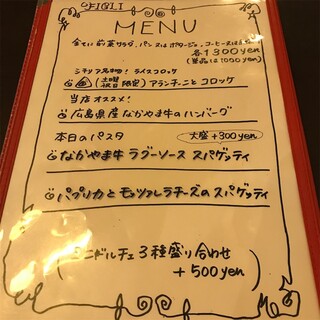 MENU
全てに前菜サラダ、パン又はポタージュ、コーヒー又は
各1300yen
(単品は1000yen)
シチリア名物! ライスコロッケ
(土曜祝日限定) アランチーニとコロッケ
当店オススメ!
広島県産なかやま牛のハンバーグ
本日のパスタ 大盛+300yen
なかやま牛ラグーソース スパゲッティ
パプリカとモッツァレラチーズのスパゲッティ
ミニドルチェ3種盛り合わせ
+500yen